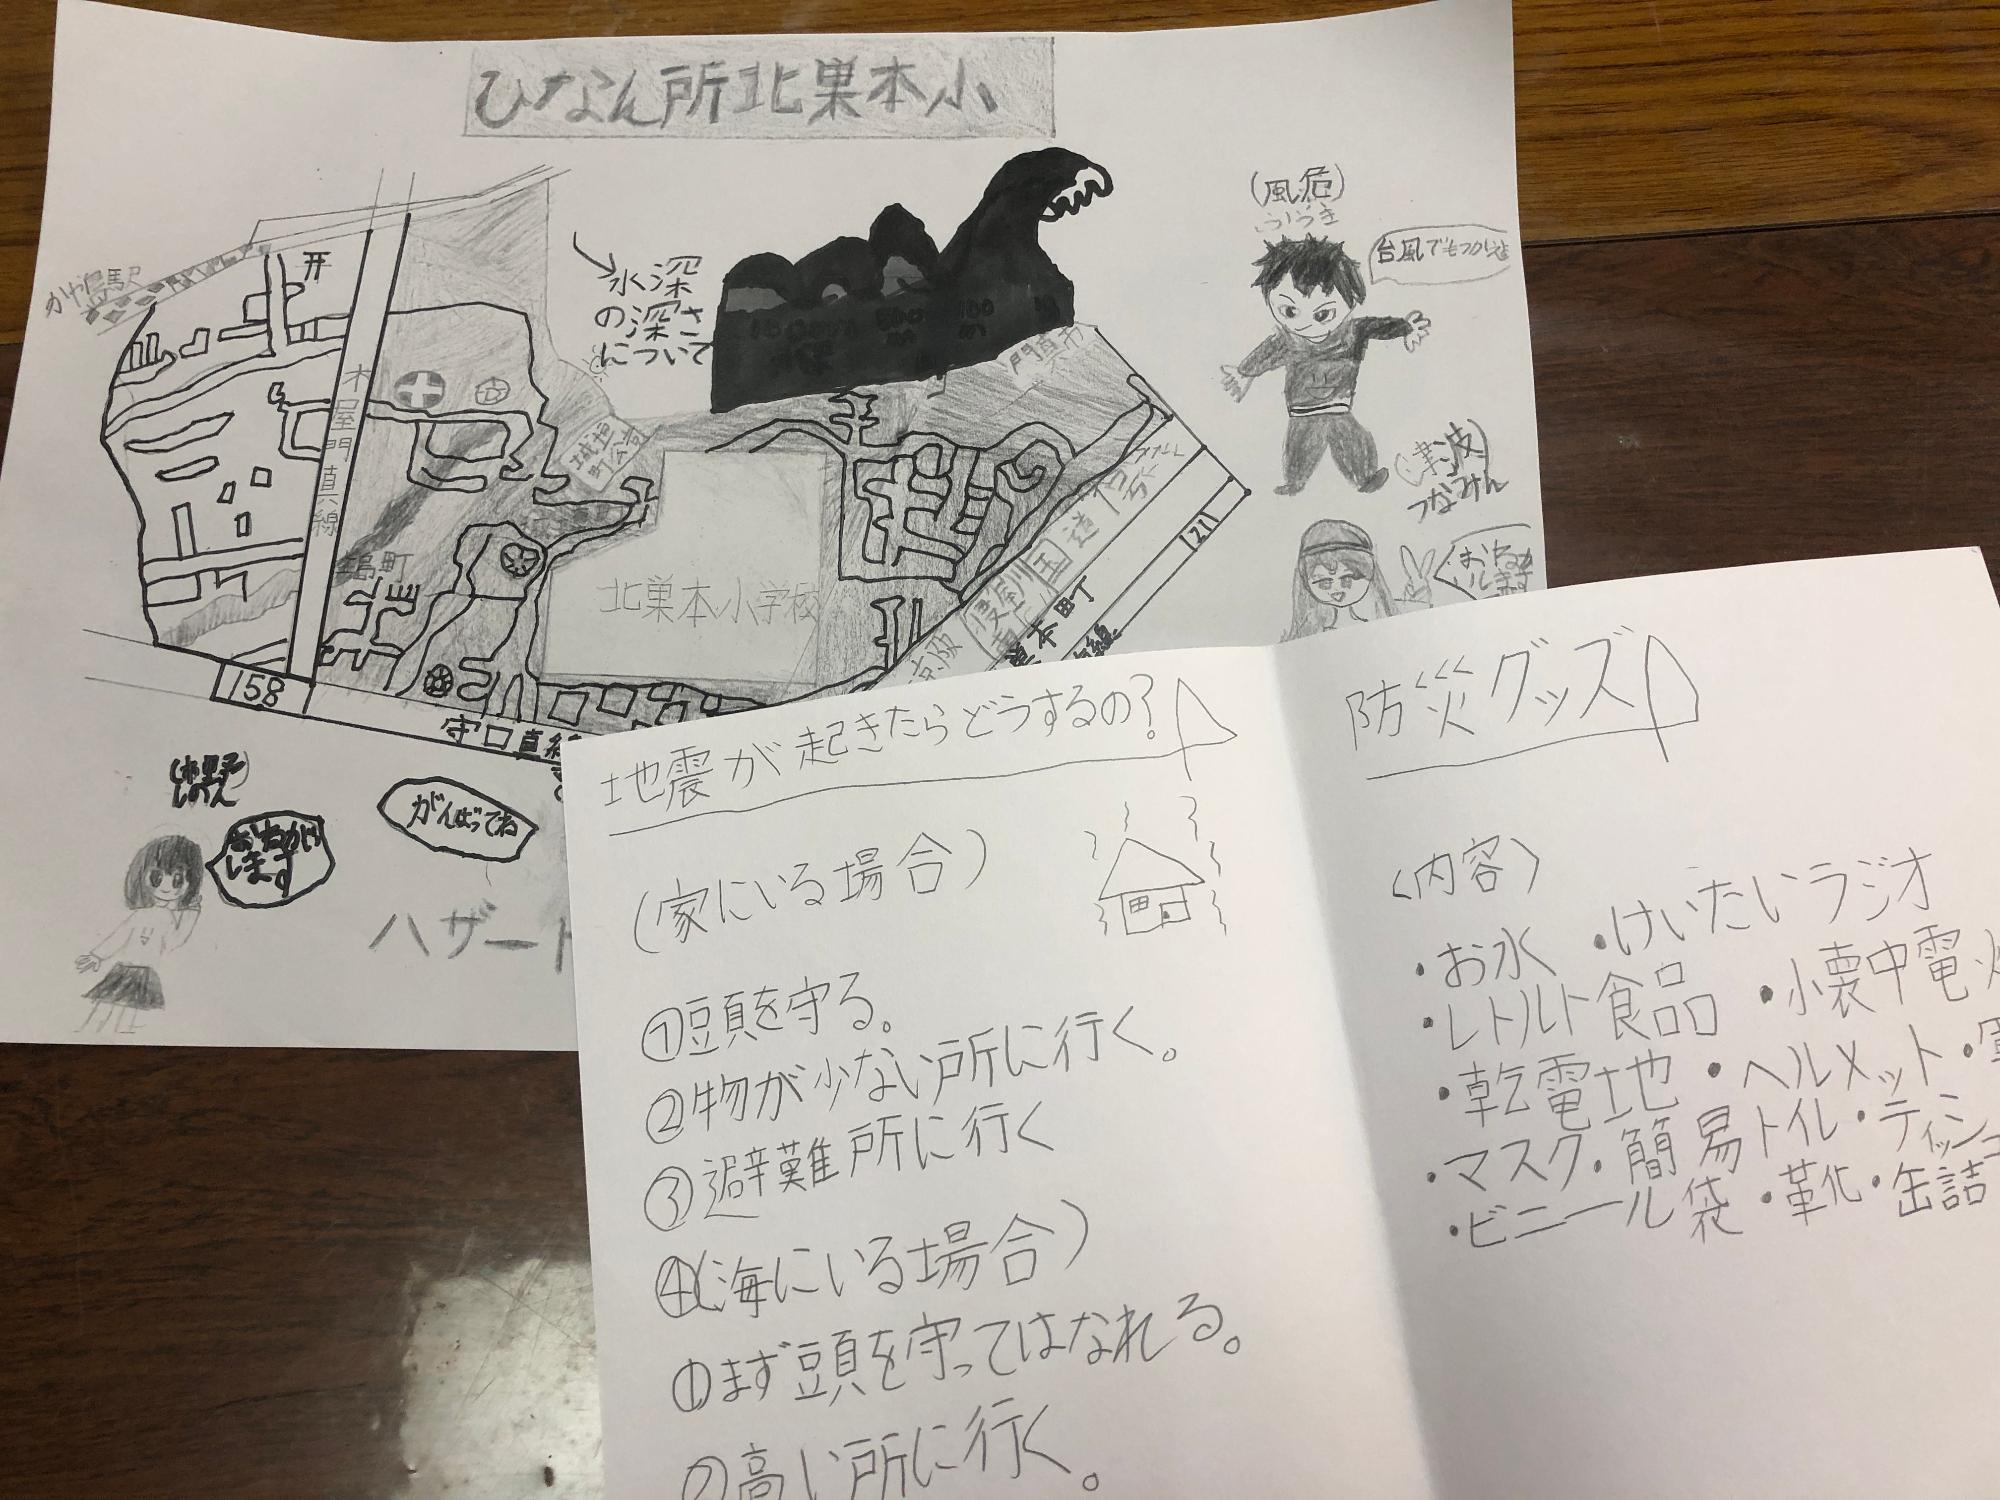 ひなん所北巣本小
(風危)
台風でも
水深
の深さ
について
門真市
木屋門真線
町公
(津波)
つなみん
北巣本小学校
島町
国道
京阪
本町
158
守口
がんばってね
おねがい
します
ハザード
地震が起きたらどうするの?
(家にいる場合)
①頭を守る。
②物が少ない所に行く。
③避難所に行く
④(海にいる場合)
①まず頭を守ってはなれる。
②高い所に行く。
防災グッズ
〈内容〉
・お水 ・けいたいラジオ
・レトルト食品 ・小懐中電
・乾電地 ・ヘルメット ・
・マスク ・簡易トイル ・ティッシュ
・ビニール袋 ・革化 ・缶詰